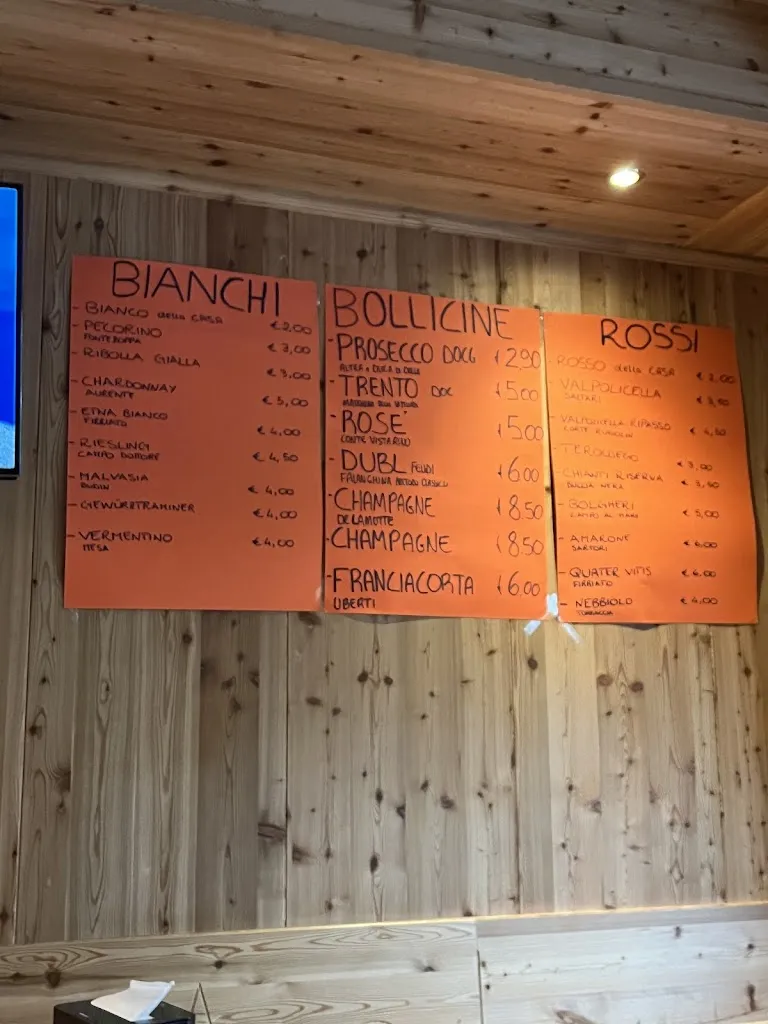 BIANCHI
- BIANCO della CASA € 2,00
- PECORINO € 3,00
FONTEZOPPA
- RIBOLLA GIALLA € 3.00
- CHARDONNAY € 5,00
AURENTE
- ETNA BIANCO € 4,00
FIRRIATO
- RIESLING € 4,50
CAMPO DOTTORE
- MALVASIA € 4,00
- GEWÜRZTRAMINER € 4,00
- VERMENTINO € 4,00
MESA
BOLLICINE
- PROSECCO DOCG € 2,90
- TRENTO DOC € 5,00
- ROSE' € 5,00
- DUBL FEUDI € 6,00
FALANGHINA METODO CLASSICO
- CHAMPAGNE € 8.50
DELAMOTTE
- CHAMPAGNE € 8.50
- FRANCIACORTA € 6,00
UBERTI
ROSSI
- ROSSO della CASA € 2,00
- VALPOLICELLA € 3,50
SARTARI
- VALPOLICELLA RIPASSO € 4,50
- TEROLDEGO € 3,00
- CHIANTI RISERVA € 3,50
- BOLGHERI € 5,00
- AMARONE € 6,00
SARTORI
- QUATER VITIS € 6,00
FIRRIATO
- NEBBIOLO € 4,00